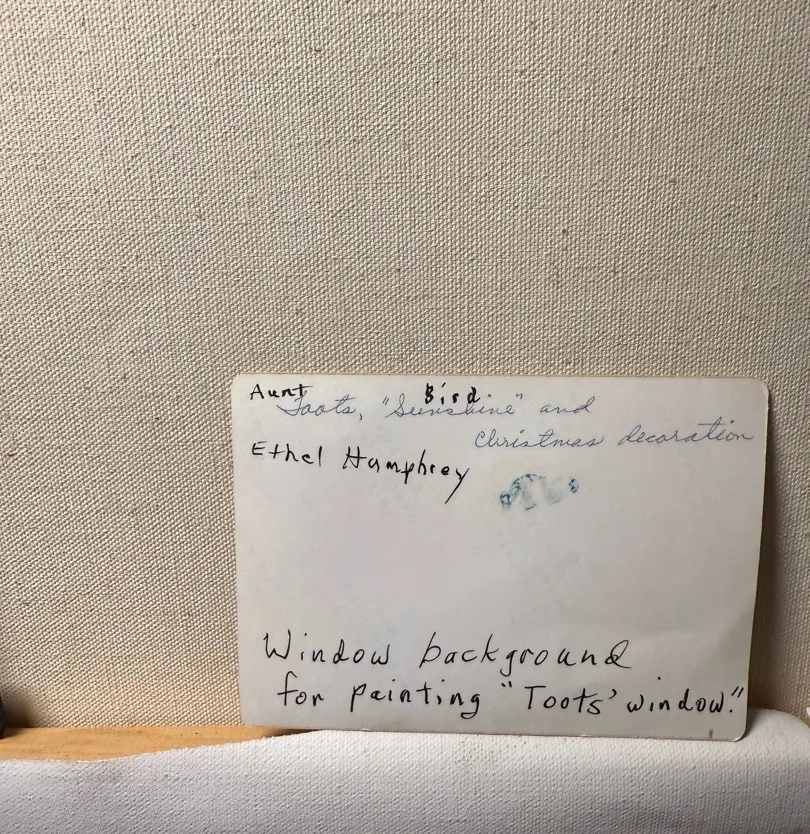 Aunt Bird
Toots, "Sunshine" and
Christmas decoration
Ethel Humphrey
Window background
for painting "Toots' window."